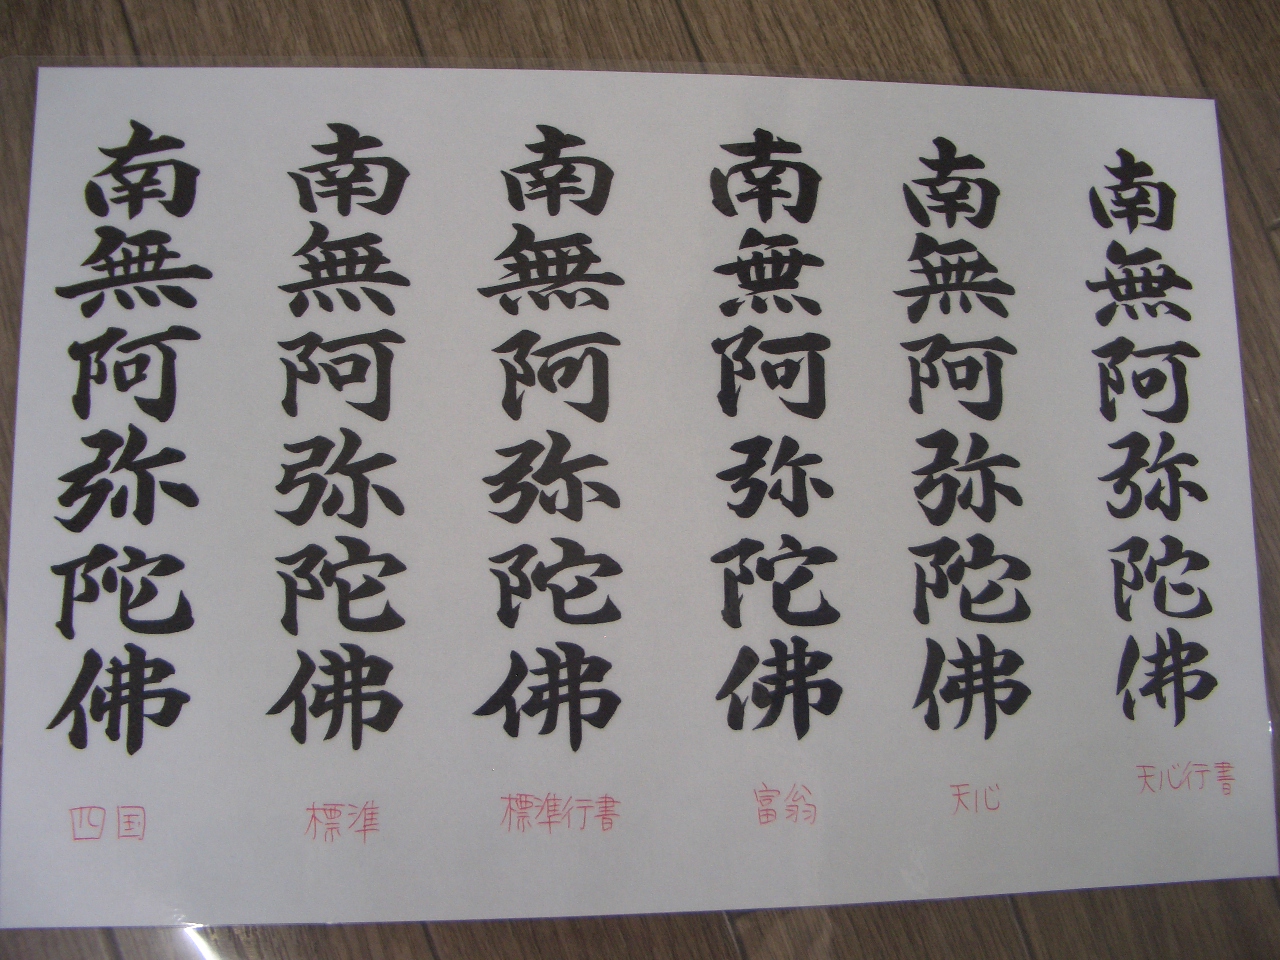 南無阿弥陀佛
南無阿弥陀佛
南無阿弥陀佛
南無阿弥陀佛
南無阿弥陀佛
南無阿弥陀佛
四国
標準
標準行書
富翁
天心
天心行書